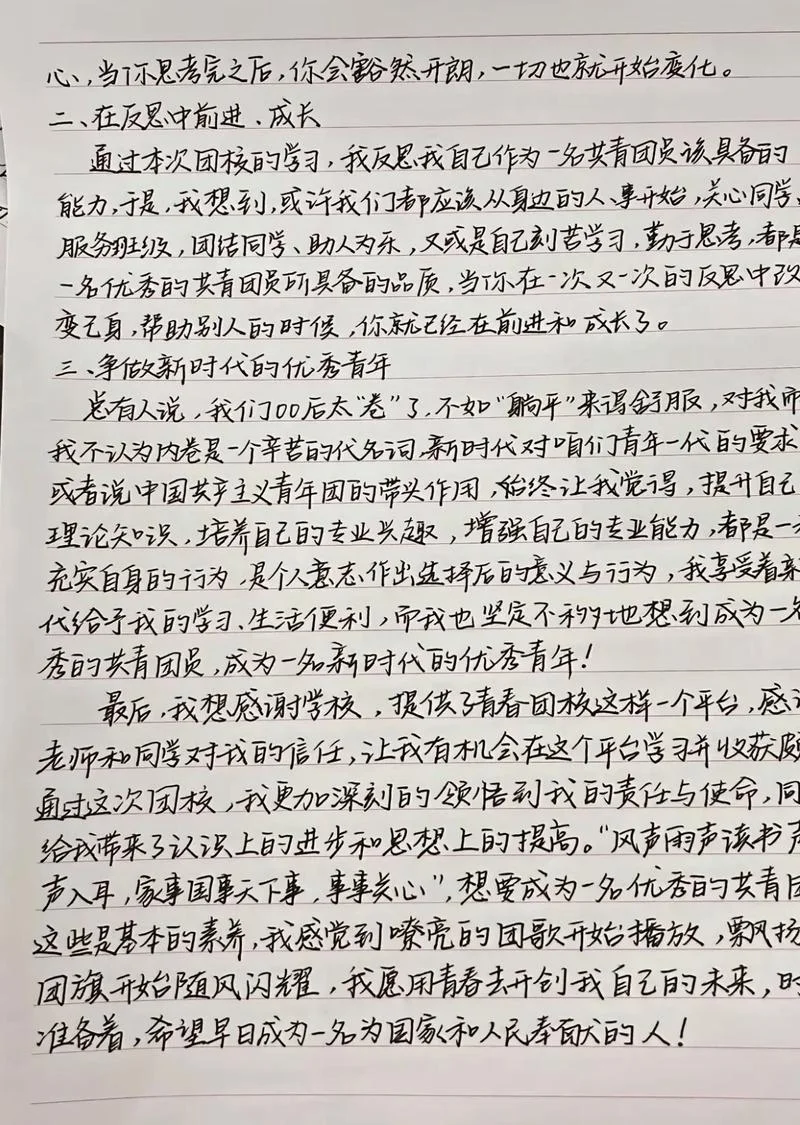 心，当你思考完之后，你会豁然开朗，一切也就开始变化。
二、在反思中前进、成长
通过本次团校的学习，我反思我自己作为一名共青团员该具备的
能力，于是，我想到，或许我们都应该从身边的人、事开始，关心同学、
服务班级，团结同学、助人为乐，又或是自己刻苦学习，勤于思考，都是
一名优秀的共青团员所具备的品质，当你在一次又一次的反思中改
变己身，帮助别人的时候，你就已经在前进和成长了。
三、争做新时代的优秀青年
总有人说，我们00后太“卷”了，不如“躺平”来得舒服，对我而
我不认为内卷是一个辛苦的代名词，新时代对咱们青年一代的要求
或者说中国共产主义青年团的带头作用，始终让我觉得，提升自己
理论知识，培养自己的专业兴趣，增强自己的专业能力，都是一
充实自身的行为，是个人意志作出选择后的意义与行为，我享受着新
代给予我的学习、生活便利，而我也坚定不移地想到成为一名
秀的共青团员，成为一名新时代的优秀青年！
最后，我想感谢学校，提供了青春团校这样一个平台，感谢
老师和同学对我的信任，让我有机会在这个平台学习并收获颇
通过这次团校，我更加深刻的领悟到我的责任与使命，同
给我带来了认识上的进步和思想上的提高。“风声雨声读书声
声入耳，家事国事天下事，事事关心”，想要成为一名优秀的共青团
这些是基本的素养，我感觉到嘹亮的团歌开始播放，飘扬
团旗开始随风闪耀，我愿用青春去开创我自己的未来，时
准备着，希望早日成为一名为国家和人民奉献的人！